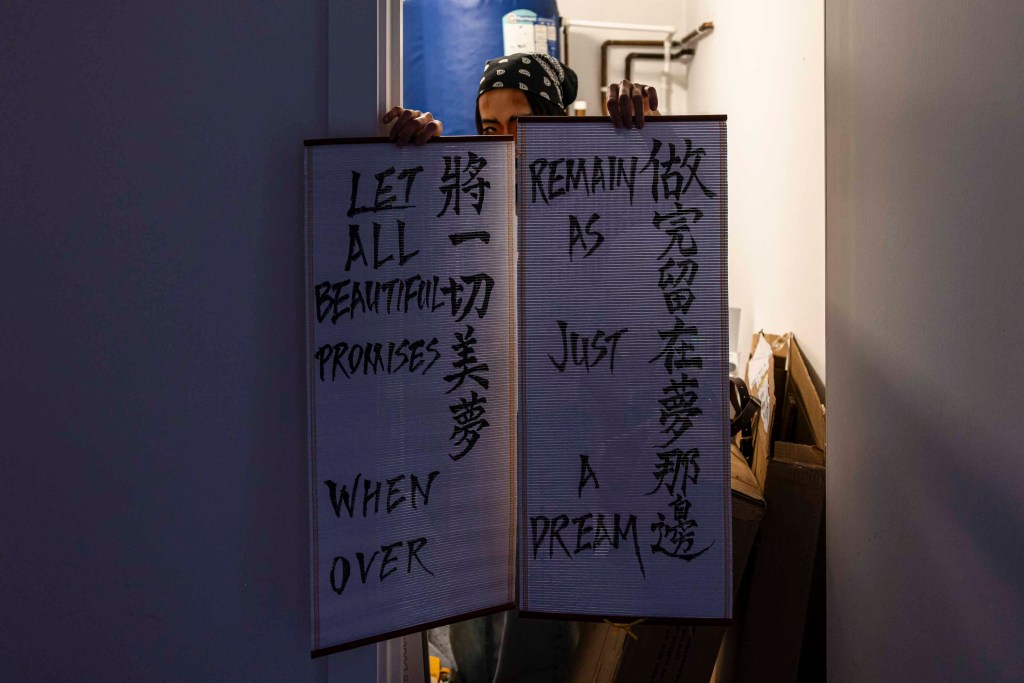 LET
ALL
BEAUTIFUL
PROMISES
WHEN
OVER
將一切美夢
REMAIN
AS
JUST
A
DREAM
做完留在夢那邊